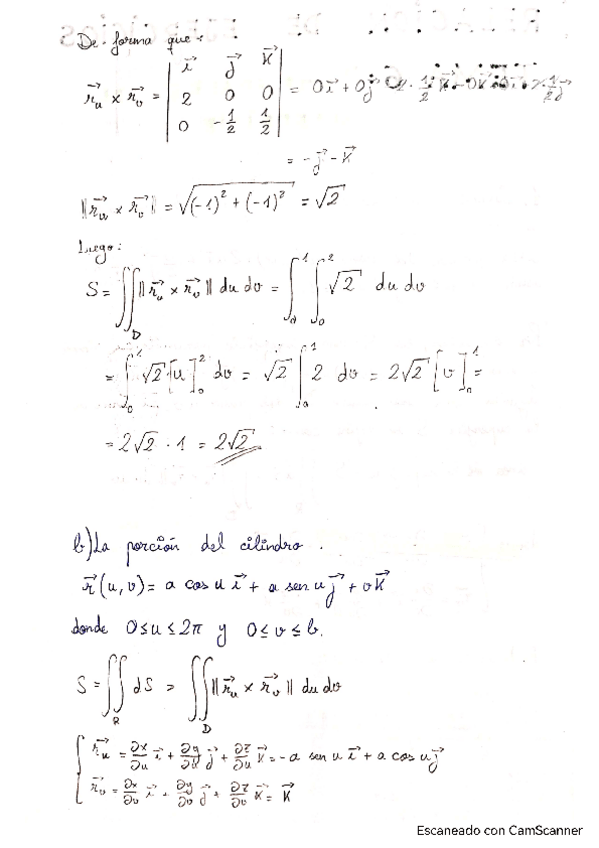 De forma que:
r⃗u × r⃗v = | i⃗ j⃗ k⃗ | 2 0 0 | 0 -1/2 1/2 | = 0i⃗ + 0j⃗
= -j⃗ - k⃗
||r⃗u × r⃗v|| = √((-1)² + (-1)²) = √2
Luego:
S = ∬_D ||r⃗u × r⃗v|| du dv = ∫₀¹ ∫₀² √2 du dv
= ∫₀¹ √2 [u]₀² dv = √2 ∫₀¹ 2 dv = 2√2 [v]₀¹ =
= 2√2 · 1 = 2√2
b) La porción del cilindro.
r⃗(u,v) = a cos u i⃗ + a sen u j⃗ + v k⃗
donde 0 ≤ u ≤ 2π y 0 ≤ v ≤ b.
S = ∬_R dS = ∬_D ||r⃗u × r⃗v|| du dv
{ r⃗u = ∂x/∂u i⃗ + ∂y/∂u j⃗ + ∂z/∂u k⃗ = -a sen u i⃗ + a cos u j⃗
r⃗v = ∂x/∂v i⃗ + ∂y/∂v j⃗ + ∂z/∂v k⃗ = k⃗
Escaneado con CamScanner